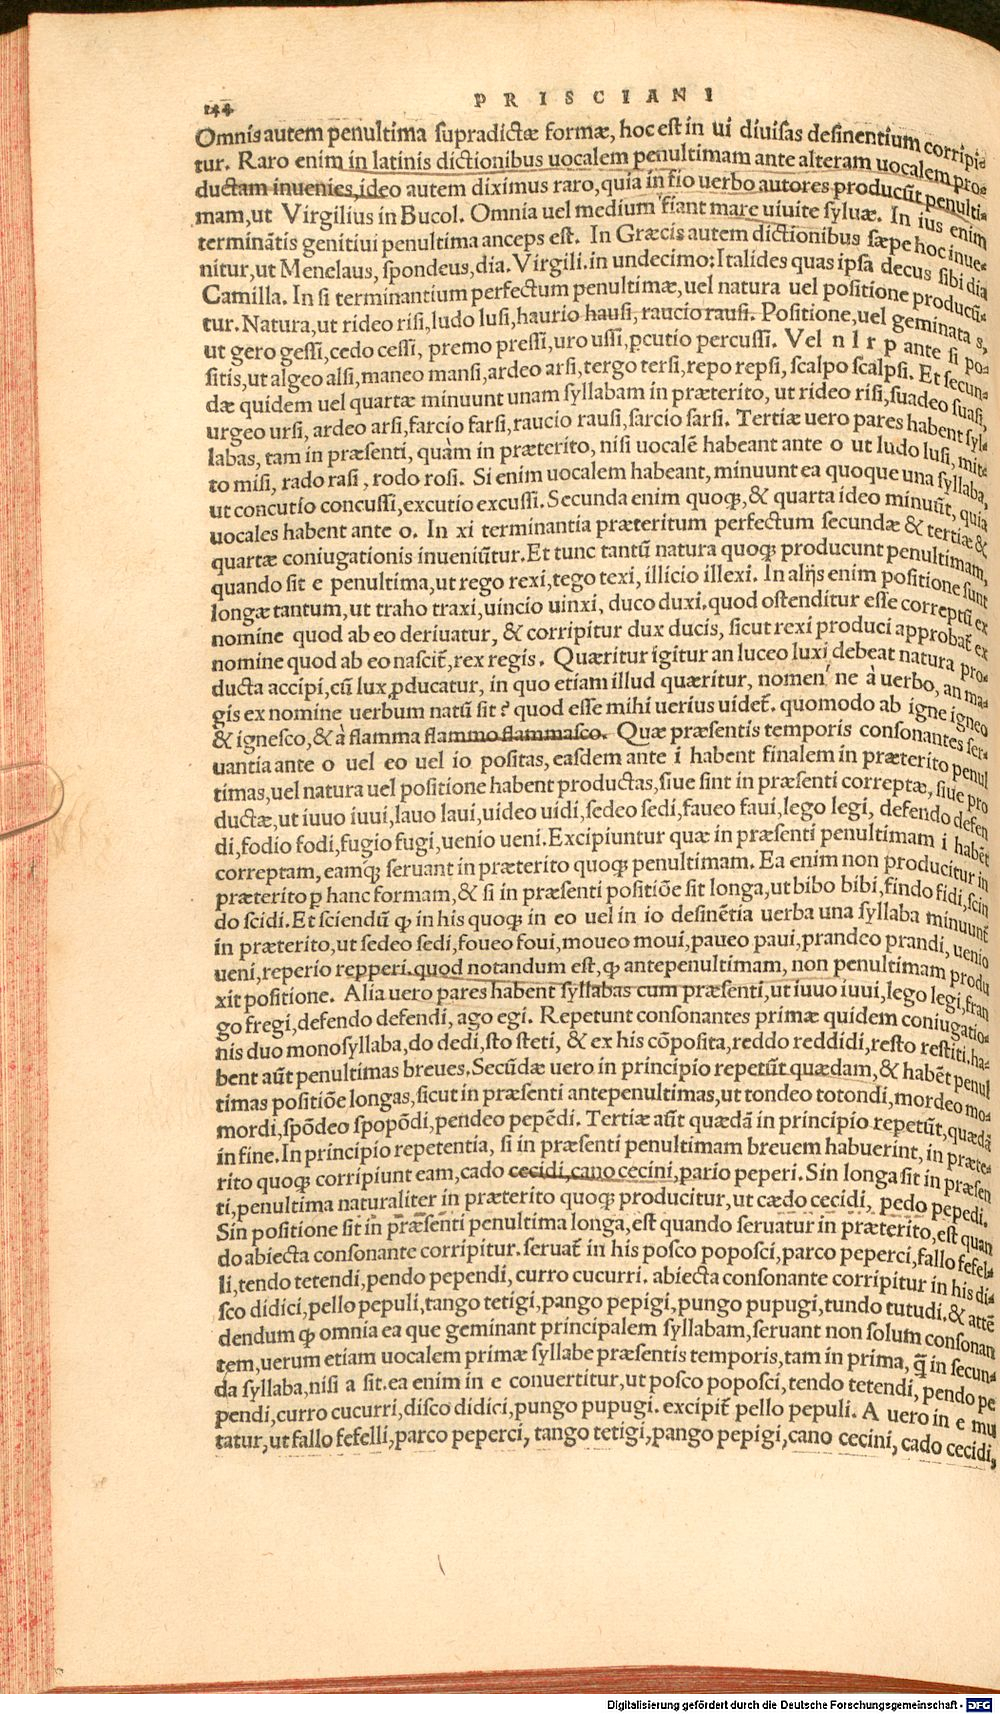 144
PRISCIANI
Omnis autem penultima supradictæ formæ, hoc est in ui diuisas desinentium corripi-
tur. Raro enim in latinis dictionibus uocalem penultimam ante alteram uocalem pro-
ductam inuenies, ideo autem diximus raro, quia in fio uerbo autores producūt penulti-
mam, ut Virgilius in Bucol. Omnia uel medium fiant mare uiuite syluæ. In ius enim
terminātis genitiui penultima anceps est. In Græcis autem dictionibus sæpe hoc inue-
nitur, ut Menelaus, spondeus, dia. Virgili. in undecimo: Italides quas ipsa decus sibi dia
Camilla. In si terminantium perfectum penultimæ, uel natura uel positione producū-
tur. Natura, ut rideo risi, ludo lusi, haurio hausi, raucio rausi. Positione, uel geminata s,
ut gero gessi, cedo cessi, premo pressi, uro ussi, ꝑcutio percussi. Vel n l r p ante si po-
sitis, ut algeo alsi, maneo mansi, ardeo arsi, tergo tersi, repo repsi, scalpo scalpsi. Et secun-
dæ quidem uel quartæ minuunt unam syllabam in præterito, ut rideo risi, suadeo suasi,
urgeo ursi, ardeo arsi, farcio farsi, raucio rausi, sarcio sarsi. Tertiæ uero pares habent syl-
labas, tam in præsenti, quàm in præterito, nisi uocalē habeant ante o ut ludo lusi, mit-
to misi, rado rasi, rodo rosi. Si enim uocalem habeant, minuunt ea quoque una syllaba,
ut concutio concussi, excutio excussi. Secunda enim quoqꝫ, & quarta ideo minuūt, quia
uocales habent ante o. In xi terminantia præteritum perfectum secundæ & tertiæ &
quartæ coniugationis inueniūtur. Et tunc tantū natura quoqꝫ producunt penultimam,
quando sit e penultima, ut rego rexi, tego texi, illicio illexi. In alijs enim positione sunt
longæ tantum, ut traho traxi, uincio uinxi, duco duxi. quod ostenditur esse correptū ex
nomine quod ab eo deriuatur, & corripitur dux ducis, sicut rexi produci approbat̄ ex
nomine quod ab eo nascit̄, rex regis. Quæritur igitur an luceo luxi debeat natura pro-
ducta accipi, cū lux ꝓducatur, in quo etiam illud quæritur, nomen ne à uerbo, an ma-
gis ex nomine uerbum natū sit? quod esse mihi uerius uidet̄. quomodo ab igne igneo
& ignesco, & à flamma flammo flammasco. Quæ præsentis temporis consonantes ser-
uantia ante o uel eo uel io positas, easdem ante i habent finalem in præterito penul
timas, uel natura uel positione habent productas, siue sint in præsenti correptæ, siue pro
ductæ, ut iuuo iuui, lauo laui, uideo uidi, sedeo sedi, faueo faui, lego legi, defendo defen
di, fodio fodi, fugio fugi, uenio ueni. Excipiuntur quæ in præsenti penultimam i habēt
correptam, eamqꝫ seruant in præterito quoqꝫ penultimam. Ea enim non producitur in
præterito ꝑ hanc formam, & si in præsenti positiōe sit longa, ut bibo bibi, findo fidi, scin
do scidi. Et sciendū ꝙ in his quoqꝫ in eo uel in io desinētia uerba una syllaba minuunt̄
in præterito, ut sedeo sedi, foueo foui, moueo moui, paueo paui, prandeo prandi, uenio
ueni, reperio repperi. quod notandum est, ꝙ antepenultimam, non penultimam produ
xit positione. Alia uero pares habent syllabas cum præsenti, ut iuuo iuui, lego legi, fran
go fregi, defendo defendi, ago egi. Repetunt consonantes primæ quidem coniugatio-
nis duo monosyllaba, do dedi, sto steti, & ex his cōposita, reddo reddidi, resto restiti. ha-
bent aūt penultimas breues. Secūdæ uero in principio repetūt quædam, & habēt penul
timas positiōe longas, sicut in præsenti antepenultimas, ut tondeo totondi, mordeo mo-
mordi, spōdeo spopōdi, pendeo pepēdi. Tertiæ aūt quædā in principio repetūt, quædā
in fine. In principio repetentia, si in præsenti penultimam breuem habuerint, in præte-
rito quoqꝫ corripiunt eam, cado cecidi, cano cecini, pario peperi. Sin longa sit in præsen
ti, penultima naturaliter in præterito quoqꝫ producitur, ut cædo cecidi, pedo pepedi.
Sin positione sit in præsenti penultima longa, est quando seruatur in præterito, est quan
do abiecta consonante corripitur. seruat̄ in his posco poposci, parco peperci, fallo fefel-
li, tendo tetendi, pendo pependi, curro cucurri. abiecta consonante corripitur in his di-
sco didici, pello pepuli, tango tetigi, pango pepigi, pungo pupugi, tundo tutudi. & attē
dendum ꝙ omnia ea que geminant principalem syllabam, seruant non solum consonan
tem, uerum etiam uocalem primæ syllabe præsentis temporis, tam in prima, q̄ in secun-
da syllaba, nisi a sit. ea enim in e conuertitur, ut posco poposci, tendo tetendi, pendo pe
pendi, curro cucurri, disco didici, pungo pupugi. excipit̄ pello pepuli. A uero in e mu
tatur, ut fallo fefelli, parco peperci, tango tetigi, pango pepigi, cano cecini, cado cecidi,
Digitalisierung gefördert durch die Deutsche Forschungsgemeinschaft - DFG